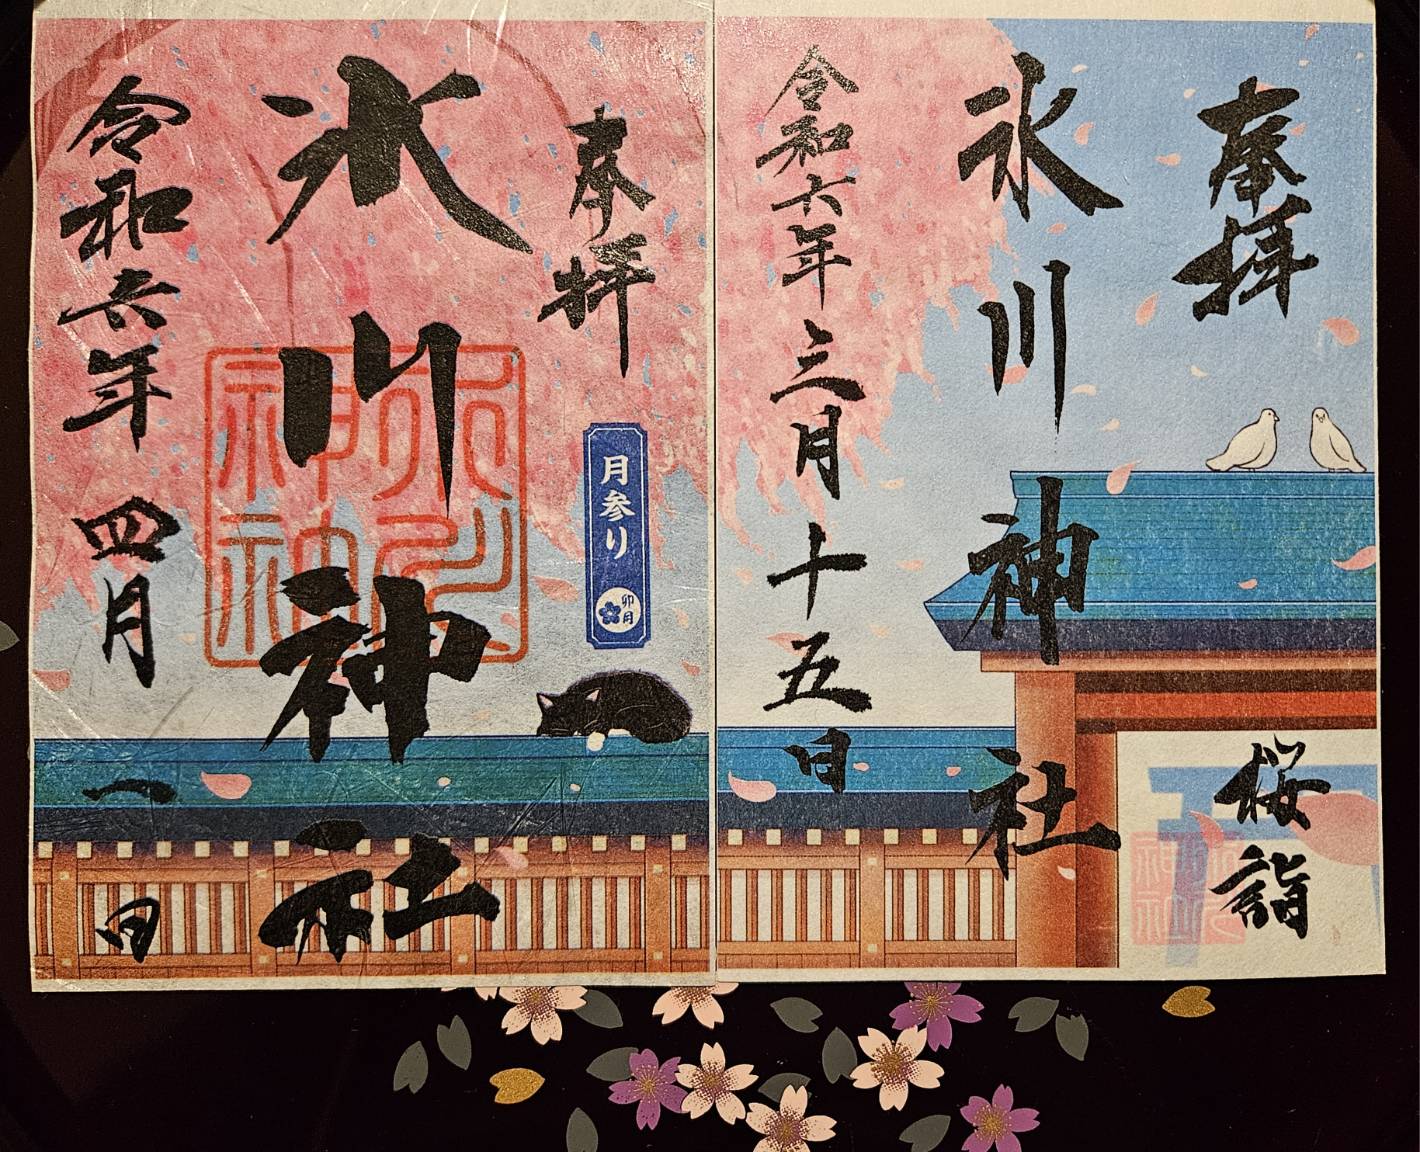 奉拝
氷川神社
令和六年三月十五日
桜詣
奉拝
月参り
卯月
氷川神社
令和六年四月一日